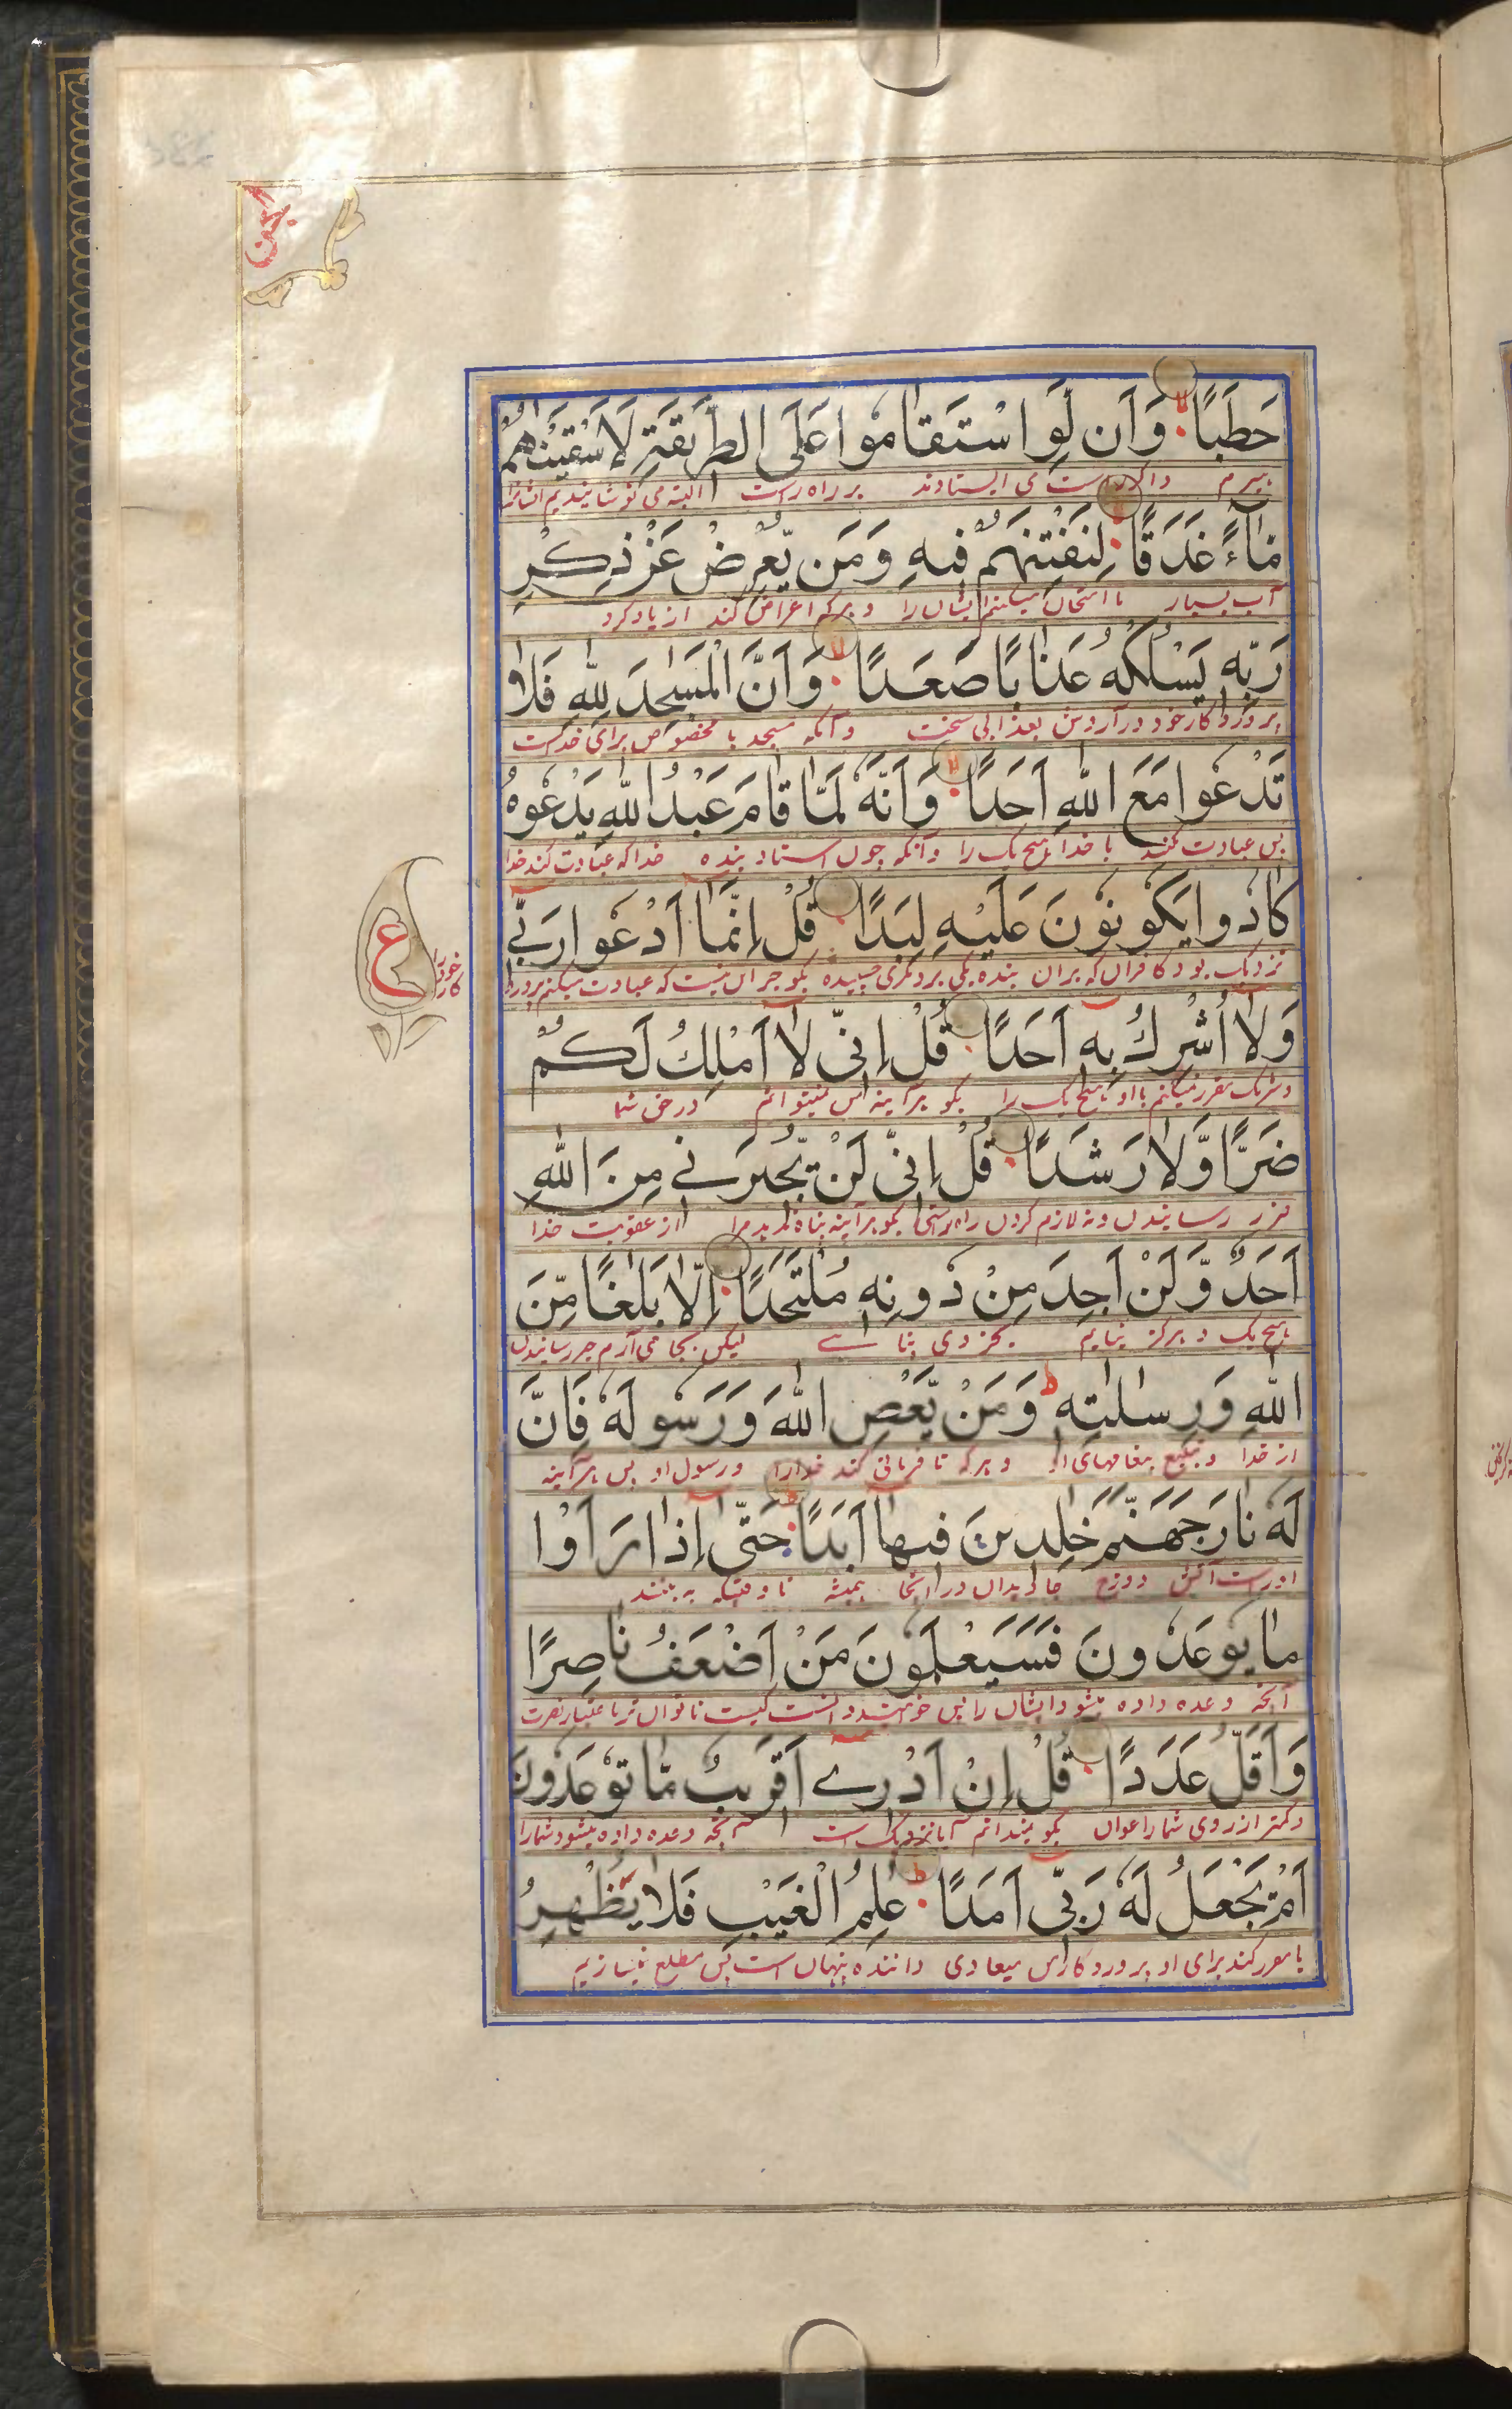 الجن
حَطَبًا وَأَن لَّوِ اسْتَقَامُوا عَلَى الطَّرِيقَةِ لَأَسْقَيْنٰهُم
هیزم و اگر راست می ایستادند بر راه راست البته می نوشانیدیم ایشانرا
مَّاءً غَدَقًا لِنَفْتِنَهُمْ فِيهِ وَمَن يُّعْرِضْ عَنْ ذِكْرِ
آب بسیار تا امتحان میکنیم ایشان را و هرکه اعراض کند از یاد کرد
رَبِّهِ يَسْلُكْهُ عَذَابًا صَعَدًا وَأَنَّ الْمَسٰجِدَ لِلّٰهِ فَلَا
پروردگار خود در آردش بعذابی سخت و آنکه مسجد ها مخصوص برای خداست
تَدْعُوا مَعَ اللّٰهِ أَحَدًا وَأَنَّهُ لَمَّا قَامَ عَبْدُ اللّٰهِ يَدْعُوهُ
پس عبادت مکنید با خدا هیچ یک را و آنکه چون استاد بنده خدا که عبادت کند خدا
كَادُوا يَكُونُونَ عَلَيْهِ لِبَدًا قُلْ إِنَّمَا أَدْعُوا رَبِّي
نزدیک بود کافران که بران بنده یکی بر دیگری چسپیده بگو جز این نیست که عبادت میکنم پرورد
ع
گار خود را
وَلَا أُشْرِكُ بِهِ أَحَدًا قُلْ إِنِّي لَا أَمْلِكُ لَكُمْ
و شریک مقرر نمیکنم با او هیچ یک را بگو هر آینه من نمیتوانم در حق شما
ضَرًّا وَّلَا رَشَدًا قُلْ إِنِّي لَنْ يُّجِيرَنِي مِنَ اللّٰهِ
ضرر رسانیدن و نه لازم کردن راه راستی بگو هر آینه پناه ندهد مرا از عقوبت خدا
أَحَدٌ وَّلَنْ أَجِدَ مِنْ دُونِهِ مُلْتَحَدًا إِلَّا بَلٰغًا مِّنَ
هیچ یک و هرگز نیابم بجز وی پناهے لیکن بجا می آرم خبر رسانیدن
اللّٰهِ وَرِسٰلٰتِهِ وَمَنْ يَّعْصِ اللّٰهَ وَرَسُولَهُ فَإِنَّ
از خدا و تبلیغ پیغامهای او و هرکه نافرمانی کند خدا را و رسول او پس هر آینه
لَهُ نَارَ جَهَنَّمَ خٰلِدِينَ فِيهَا أَبَدًا حَتّٰى إِذَا رَأَوْا
او راست آتش دوزخ جاویدان در آنجا همیشه تا وقتیکه به بینند
مَا يُوعَدُونَ فَسَيَعْلَمُونَ مَنْ أَضْعَفُ نَاصِرًا
آنچه وعده داده میشود ایشان را پس خواهند دانست کیست ناتوان تر باعتبار نصرت
وَأَقَلُّ عَدَدًا قُلْ إِنْ أَدْرِي أَقَرِيبٌ مَّا تُوعَدُونَ
و کمتر از روی شمار اعوان بگو نمیدانم آیا نزدیک است آنچه وعده داده میشود شما را
أَمْ يَجْعَلُ لَهُ رَبِّي أَمَدًا عٰلِمُ الْغَيْبِ فَلَا يُظْهِرُ
یا مقرر کند برای او پروردگار من میعادی داننده پنهان است پس مطلع نمیسازد